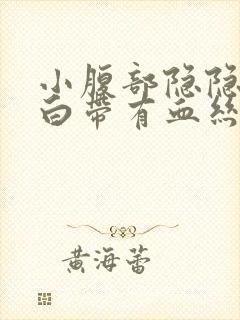 小腹部隐隐
白带有血丝
黄海蕾